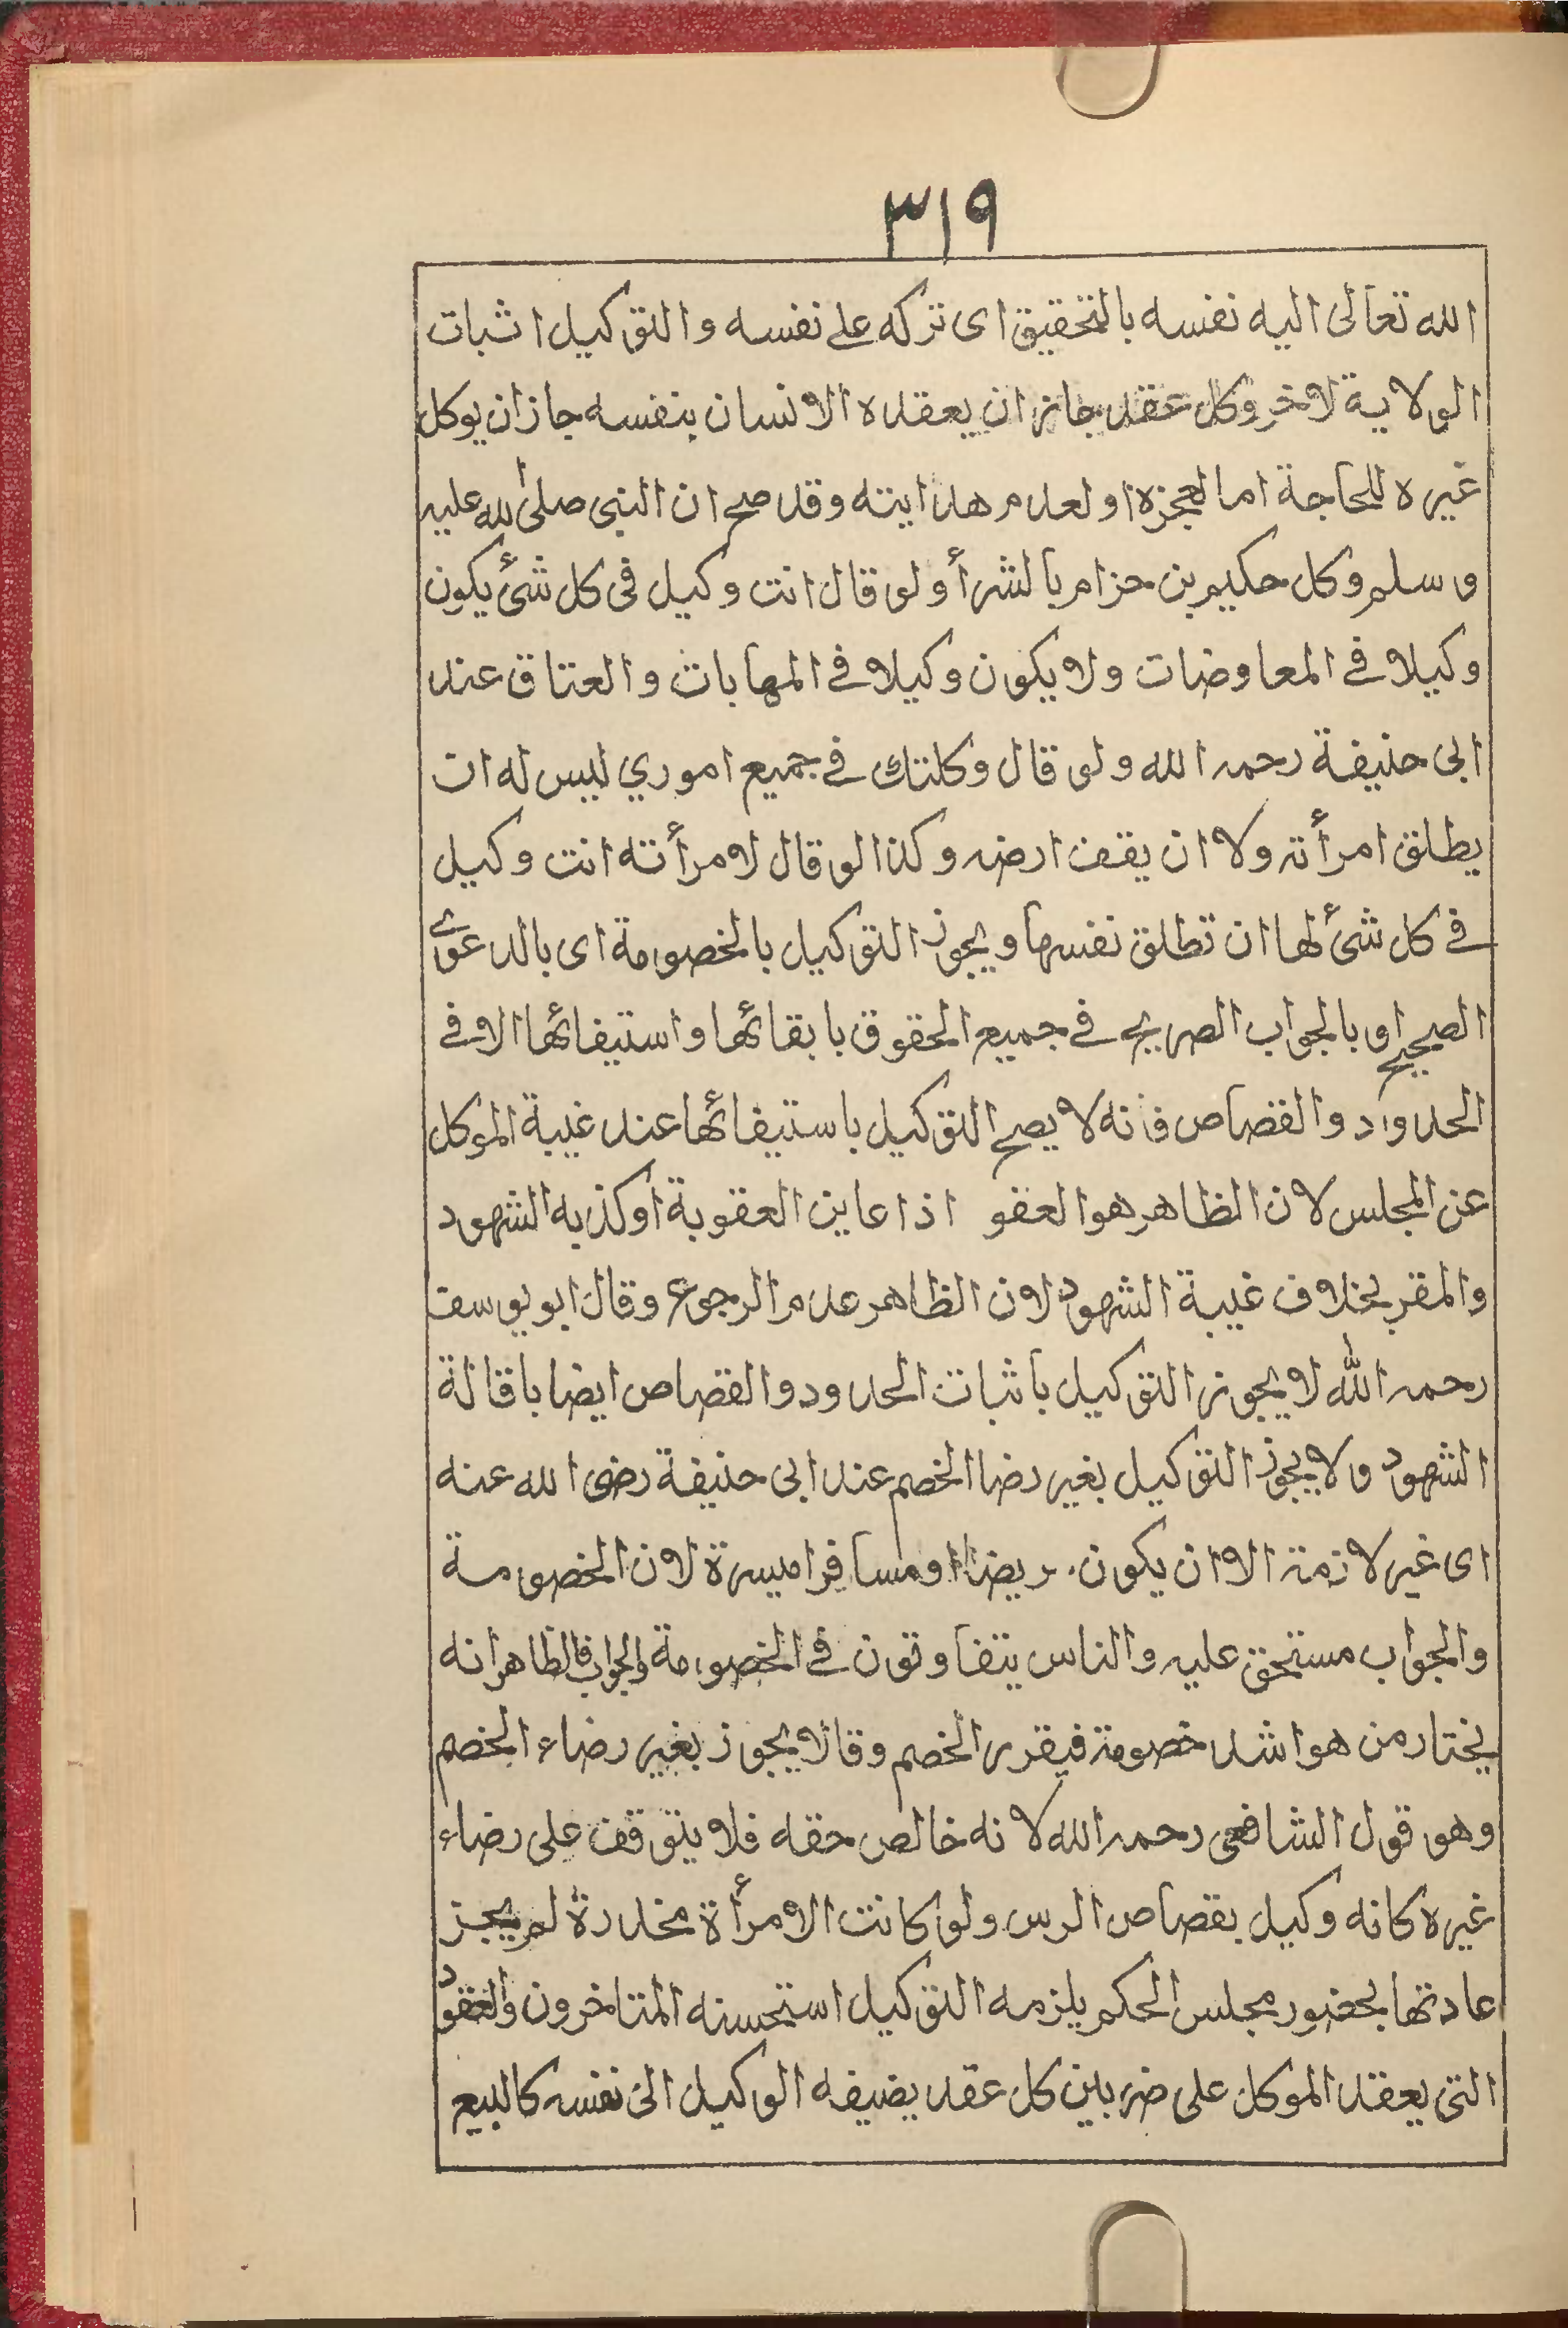 ٣١٩
الله تعالى اليه نفسه بالتحقيق اى تركه على نفسه والتوكيل اثبات
الولاية لاخر وكل عقد جاز ان يعقده الانسان بنفسه جاز ان يوكل
غيره للحاجة اما لعجزه او لعدم هدايته وقد صح ان النبى صلى الله عليه
وسلم وكل حكيم بن حزام بالشرأ ولو قال انت وكيل فى كل شئ يكون
وكيلا فى المعاوضات ولا يكون وكيلا فى الهابات والعتاق عند
ابى حنيفة رحمه الله ولو قال وكلتك فى جميع اموري ليس له ان
يطلق امرأته ولا ان يقف ارضه وكذا لو قال لامرأته انت وكيل
فى كل شئ لها ان تطلق نفسها ويجوز التوكيل بالخصومة اى بالدعوى
الصحيح او بالجواب الصريح فى جميع الحقوق بابقائها واستيفائها الا فى
الحدود والقصاص فانه لا يصح التوكيل باستيفائها عند غيبة الموكل
عن المجلس لان الظاهر هو العفو اذا عاين العقوبة أو كذبه الشهود
والمقر بخلاف غيبة الشهود لان الظاهر عدم الرجوع وقال ابو يوسف
رحمه الله لا يجوز التوكيل باثبات الحدود والقصاص ايضا باقالة
الشهود ولا يجوز التوكيل بغير رضا الخصم عند ابى حنيفة رضى الله عنه
اى غير لازمة الا ان يكون مريضا او مسافرا ميسرة لان الخصومة
والجواب مستحق عليه والناس يتفاوتون فى الخصومة والجواب فالظاهر انه
يختار من هو اشد خصومة فيقرر الخصم وقالا يجوز بغير رضاء الخصم
وهو قول الشافعى رحمه الله لانه خالص حقه فلا يتوقف على رضاء
غيره كانه وكيل بقصاص الرس ولو كانت الامرأة مخدرة لم يجز
عادتها بحضور مجلس الحكم يلزمه التوكيل استحسنه المتاخرون والعقود
التى يعقد الموكل على ضربين كل عقد يضيفه الوكيل الى نفسه كالبيع